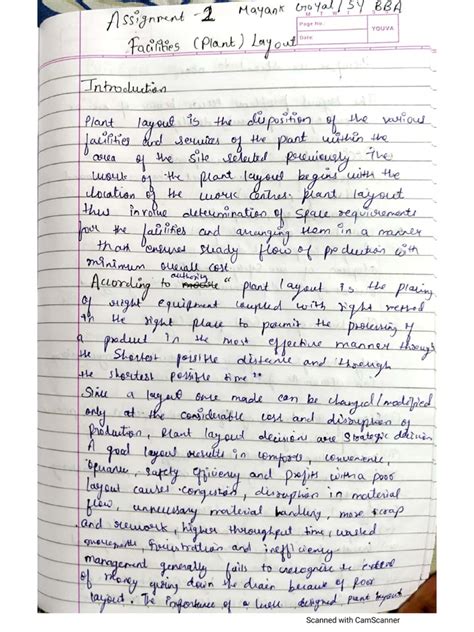 Assignment - 2 Mayank Goyal / SY BBA
Page No.:
YOUVA
Date:
Facilities (Plant) Layout
Introduction
Plant layout is the disposition of the various
facilities and services of the plant within the
area of the site selected previously The
work of the plant layout begins with the
location of the work centres. plant layout
thus involve determination of space requirements
for the facilities and arranging them in a manner
that ensures steady flow of production with
minimum overall cost
According to authority " plant layout is the placing
of right equipment coupled with right method
in the right place to permit the processing of
a product in the most effective manner through
the shortest possible distance and through
the shortest possible time"
Since a layout once made can be changed/modified
only at the considerable cost and disruption of
production, plant layout decision are strategic decision
A good layout results in comforts, convenience,
safety efficiency and profits with a poor
layout causes congusion, disruption in material
flow, unnecessary material handling, more scrap
and rework, higher throughput time, wasted
frustration and inefficiency
management generally fails to recognise the extent
of money going down the drain because of poor
layout. The importance of a well designed plant layout
Scanned with CamScanner